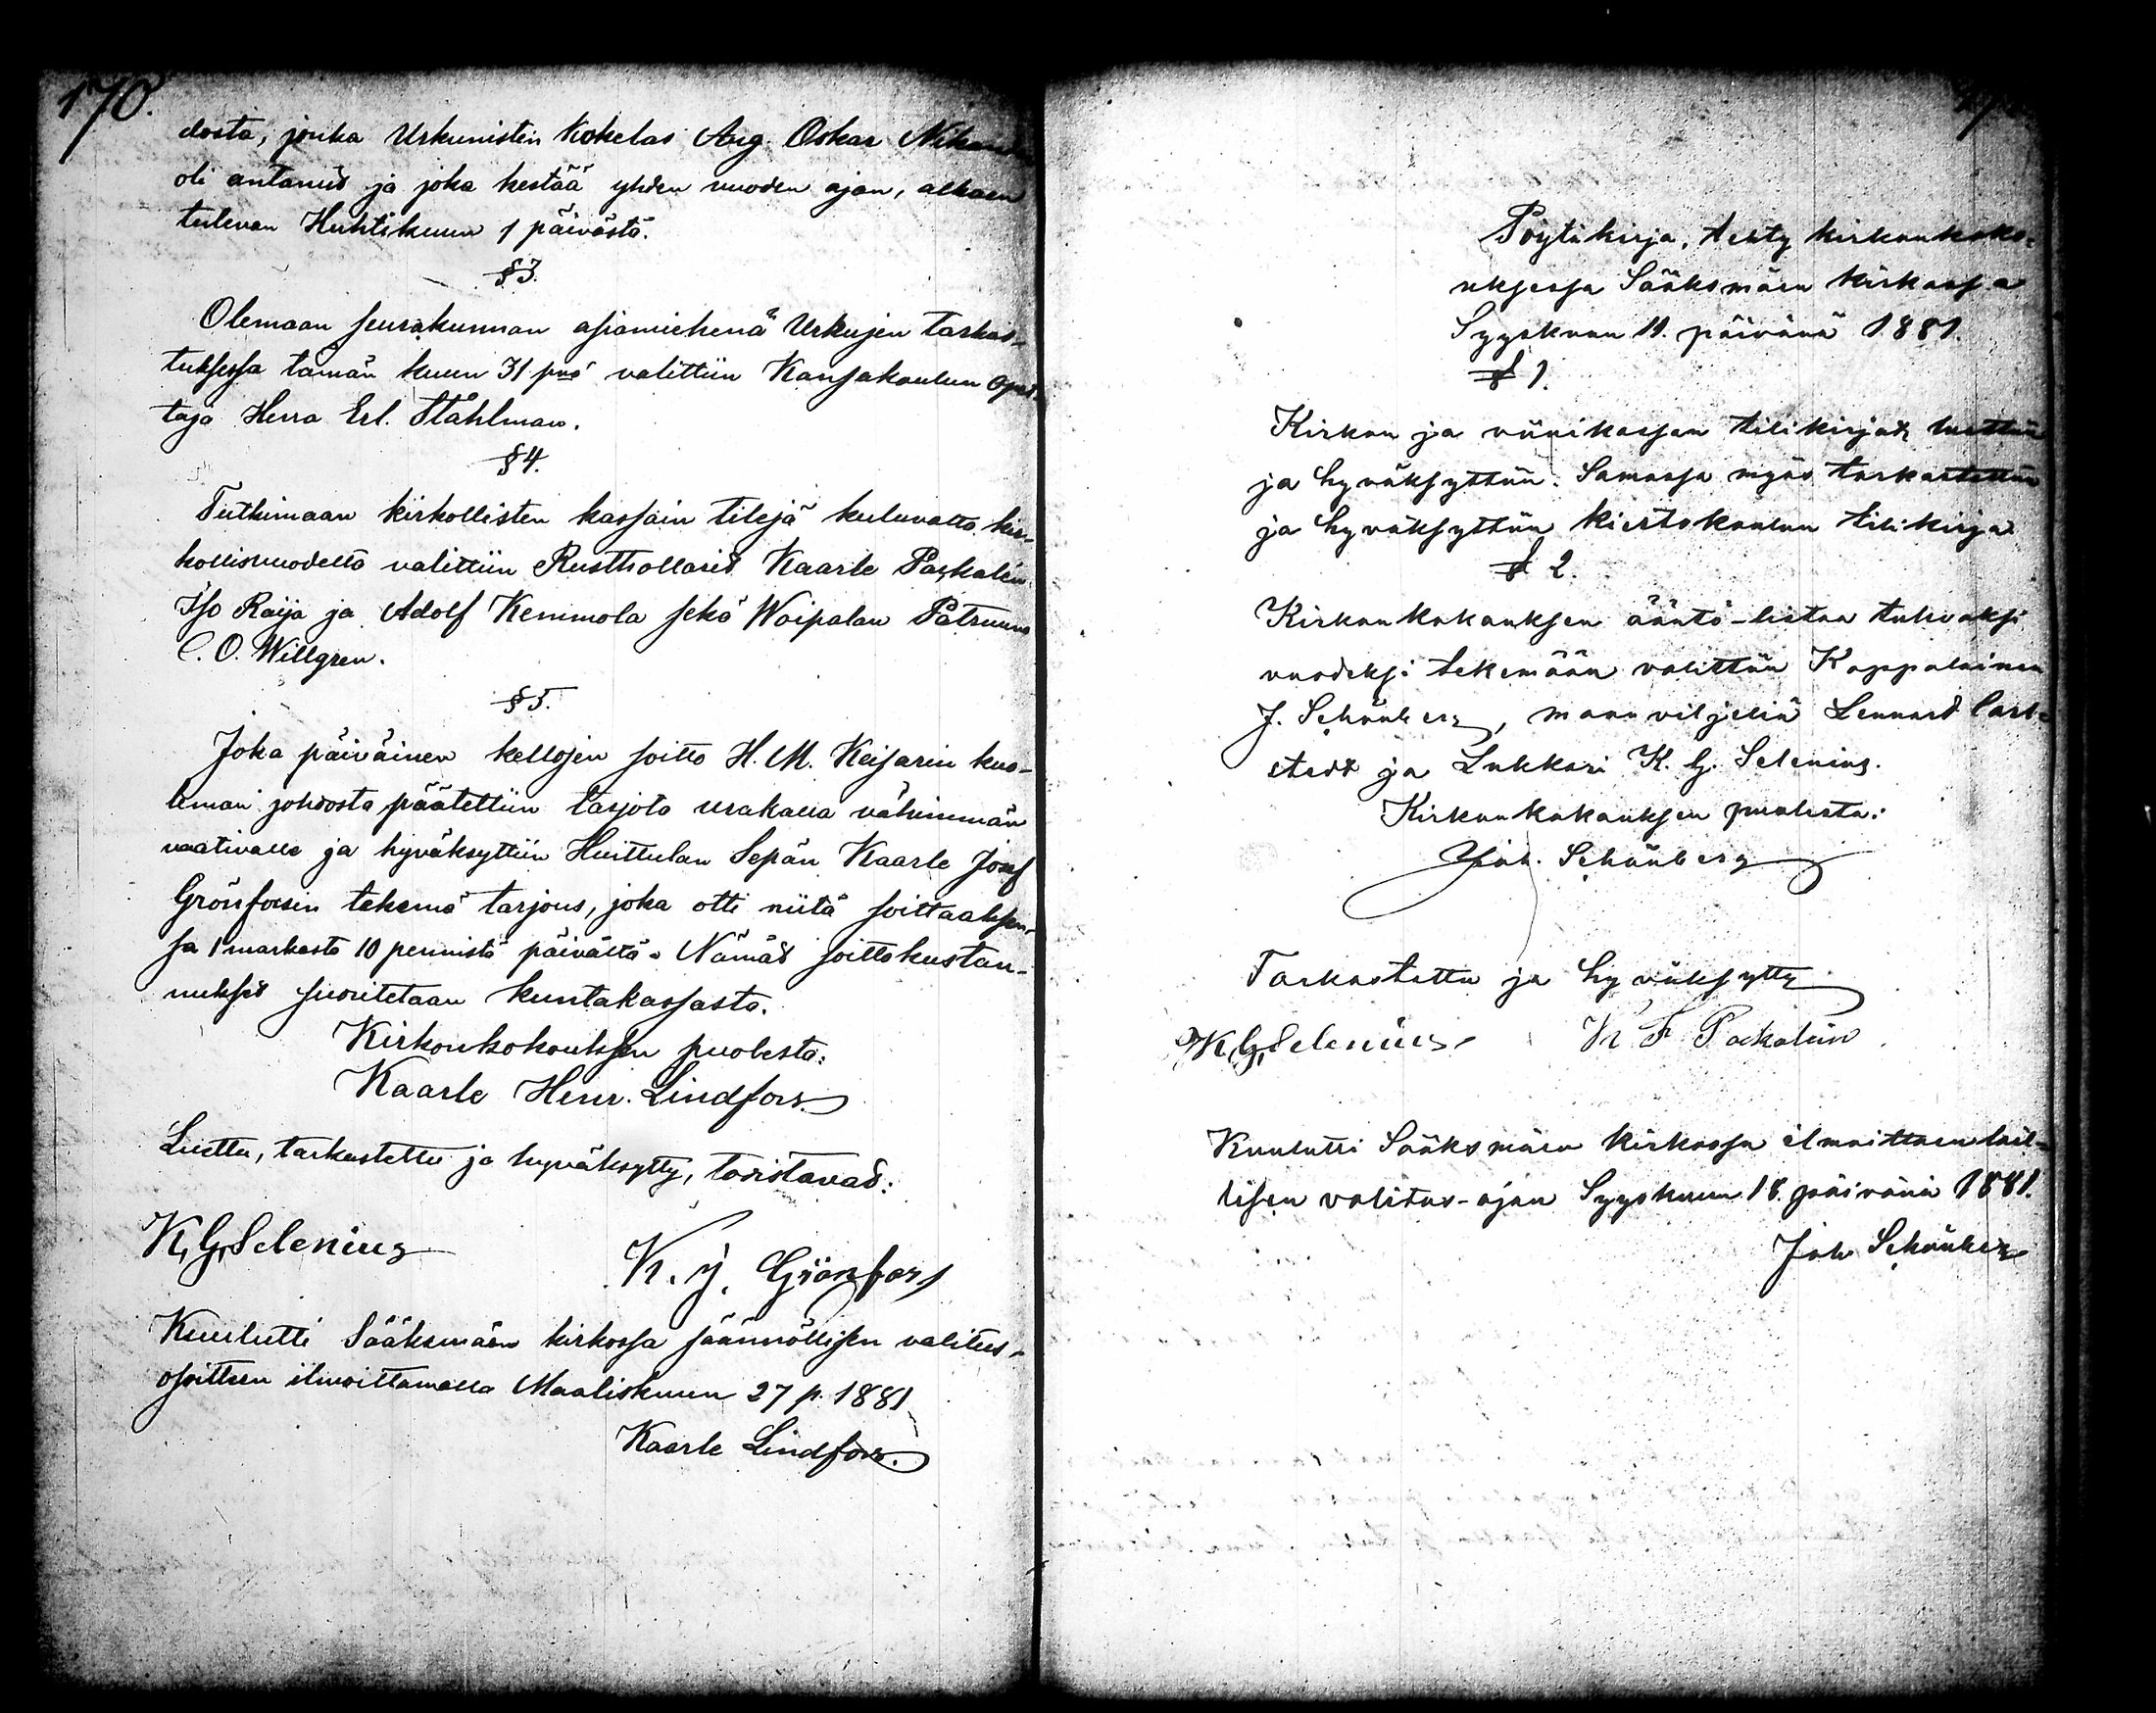 170.
dosta, jonka Urkunistin Kokelas Aug. Oskar Nikander
oli antanut ja joka kestää yhden vuoden ajan, alkaen
tulevan Huhtikuun 1 päivästä.
§3.
Olemaan seurakunnan asiamiehenä Urkujen tarkas-
tuksessa tämän kuun 31 pnä valittiin Kansakoulun Opet-
taja Herra Erl. Ståhlman.
§4.
Tutkimaan kirkollisten kassain tilejä kuluvalta kir-
kollisvuodelta valittiin Rusthollarit Kaarle Packalén
Iso Raija ja Adolf Kemmola sekä Woipalan Patruuna
C. O. Willgren.
§5.
Joka päiväinen kellojen soitto H. M. Keisarin kuo-
leman johdosta päätettiin tarjota urakalla vähimmän
vaativalle ja hyväksyttiin Huittulan Sepän Kaarle Josef
Grönforsin tekemä tarjous, joka otti niitä soittaaksen-
sa 1 markasta 10 pennistä päivältä. Nämät soittokustan-
nukset suoritetaan kuntakassasta.
Kirkonkokouksen puolesta:
Kaarle Henr. Lindfors.
Luettu, tarkastettu ja hyväksytty, todistavat:
K. G. Selenius
K. J. Grönfors
Kuulutti Sääksmäen kirkossa säännöllisen valitus-
osoitteen ilmoittamalla Maaliskuun 27 p. 1881
Kaarle Lindfors.
Pöytäkirja, tehty kirkonkoko-
uksessa Sääksmäen kirkossa
Syyskuun 11. päivänä 1881.
§ 1.
Kirkon ja viinikassan tilikirjat luettiin
ja hyväksyttiin. Samassa myös tarkastettiin
ja hyväksyttiin kiertokoulun tilikirja
§ 2.
Kirkonkokouksen ääntö-listaa tulevaksi
vuodeksi tekemään valittiin Kappalainen
J. Schönberg, maanviljeliä Lennart Carl-
stedt ja Lukkari K. G. Selenius.
Kirkonkokouksen puolesta:
Joh. Schönberg
Tarkastettu ja hyväksytty
K. G. Selenius K F Packalén
Kuulutti Sääksmäen kirkossa ilmoittaen lail-
lisen valitus-ajan Syyskuun 18. päivänä 1881.
Joh Schönberg